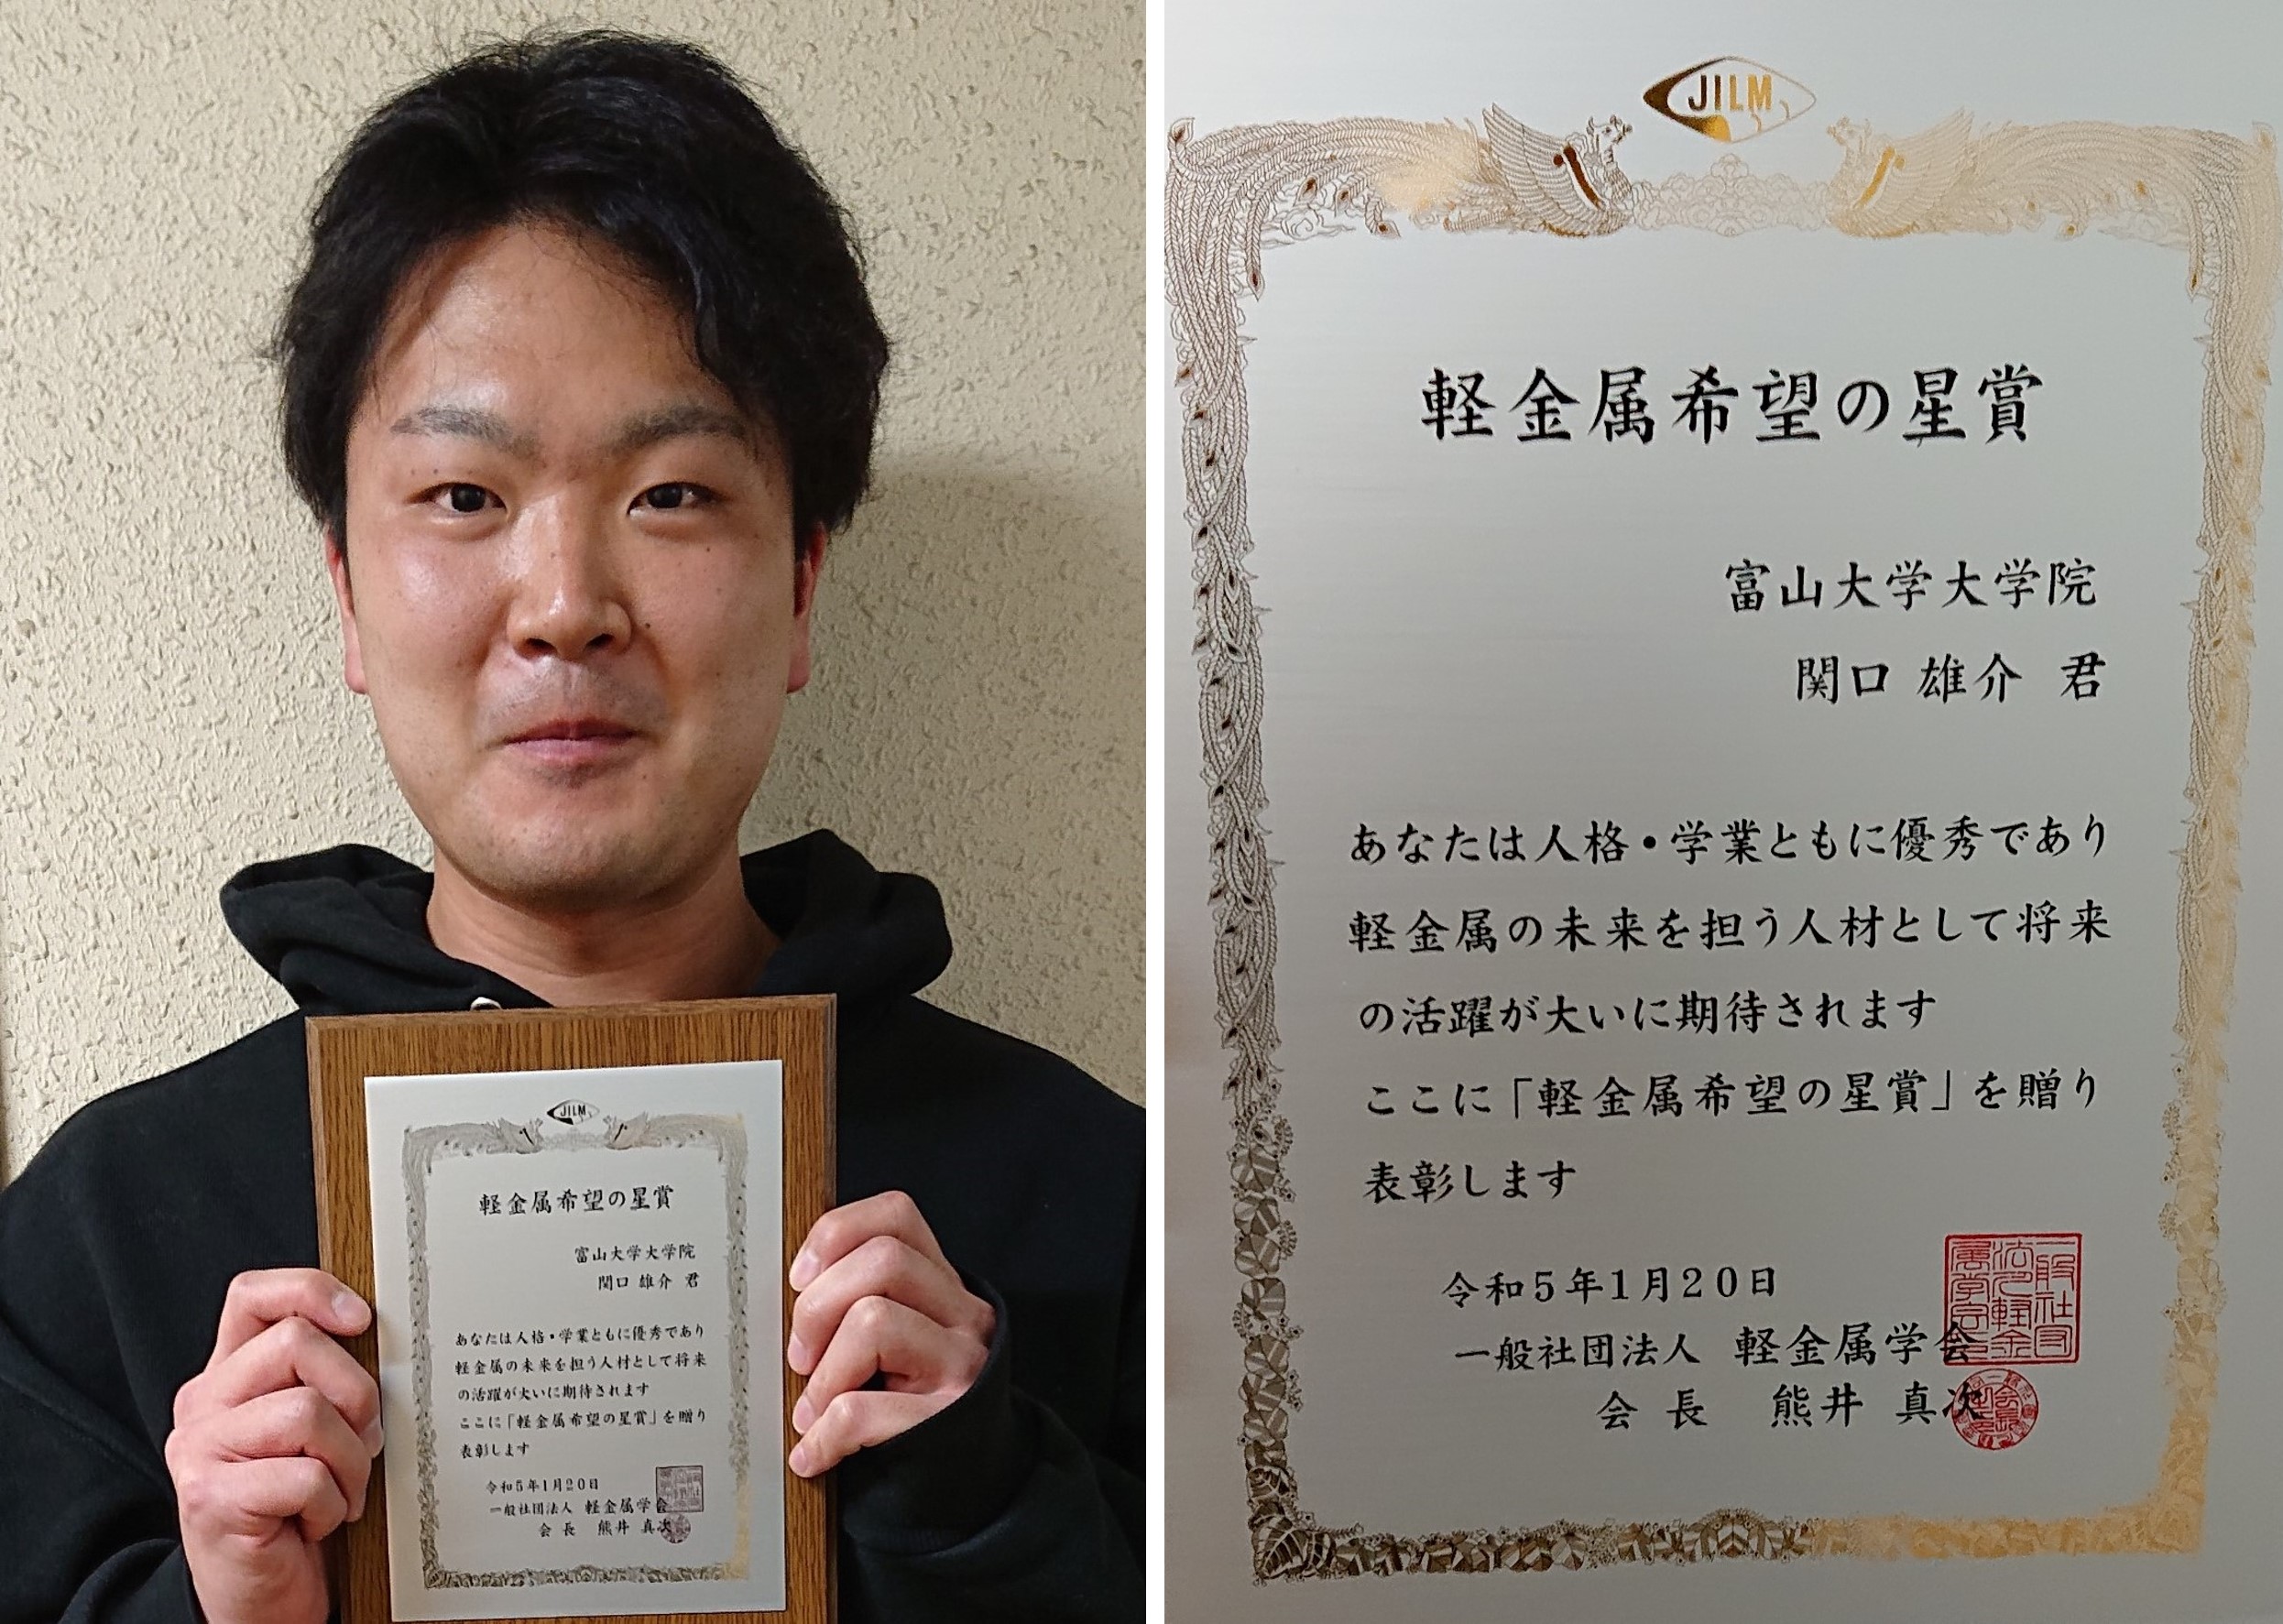 JILM
軽金属希望の星賞
富山大学大学院
関口 雄介 君
あなたは人格・学業ともに優秀であり
軽金属の未来を担う人材として将来
の活躍が大いに期待されます
ここに「軽金属希望の星賞」を贈り
表彰します
令和5年1月20日
一般社団法人 軽金属学会
会長 熊井 真次
JILM
軽金属希望の星賞
富山大学大学院
関口 雄介 君
あなたは人格・学業ともに優秀であり
軽金属の未来を担う人材として将来
の活躍が大いに期待されます
ここに「軽金属希望の星賞」を贈り
表彰します
令和5年1月20日
一般社団法人 軽金属学会
会長 熊井 真次